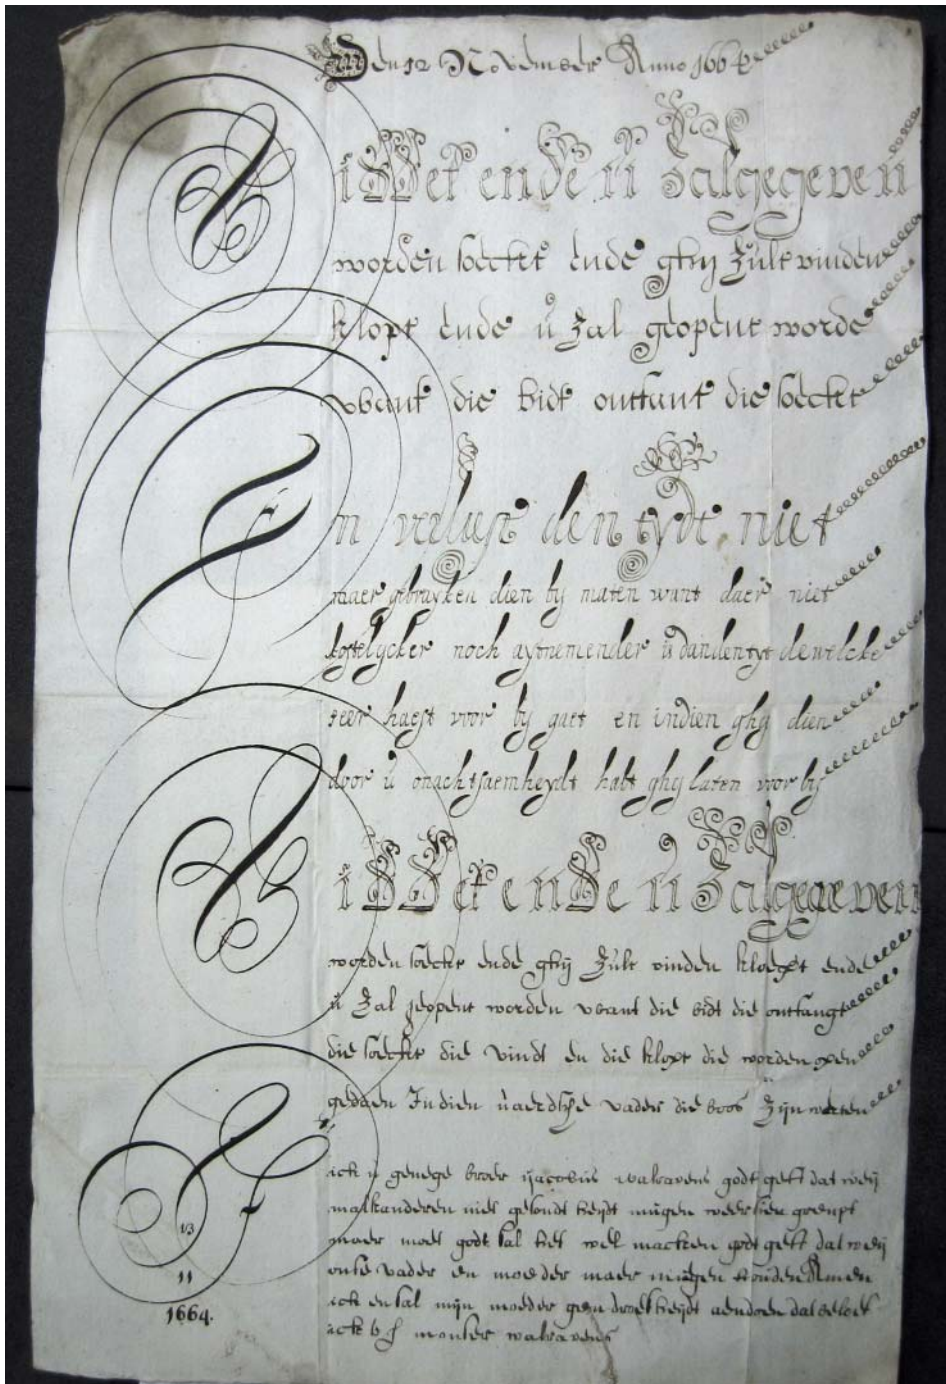 Den 12 November Anno 1664
BiddEt ende u Zal gegeven
worden soeckt ende ghy Zult vinden
klopt ende u Zal geopent worde
want die bidt ontfant die soecket
En verliest den tydt niet
maer gebruyken dien by maten want daer niet
kostelycker noch uytnemender is dan den tyt dewelcke
seer haest voor by gaet en indien ghy dien
door u onachtsaemheydt habt ghy laten voor by
BiddEt ende u Zal gegeven
worden soeckt ende ghy Zult vinden kloept ende
u Zal geopent worden want die bidt die ontfangt
die soeckt die vindt en die klopt die worden open
gedaen Indien u aerdtsche vader die boos Zijn weten
ick u genege broer Jacobus walravens godt geft dat wey
malkanderen met gesondt heydt mugen weer sien
maer moet godt sal het wel macken godt geft dat wey
onse vader en moeder maer mugen houden Amen
ick en sal mijn moeder geen droefheydt aendoen dat beloef
ick walravens
13
11
1664.